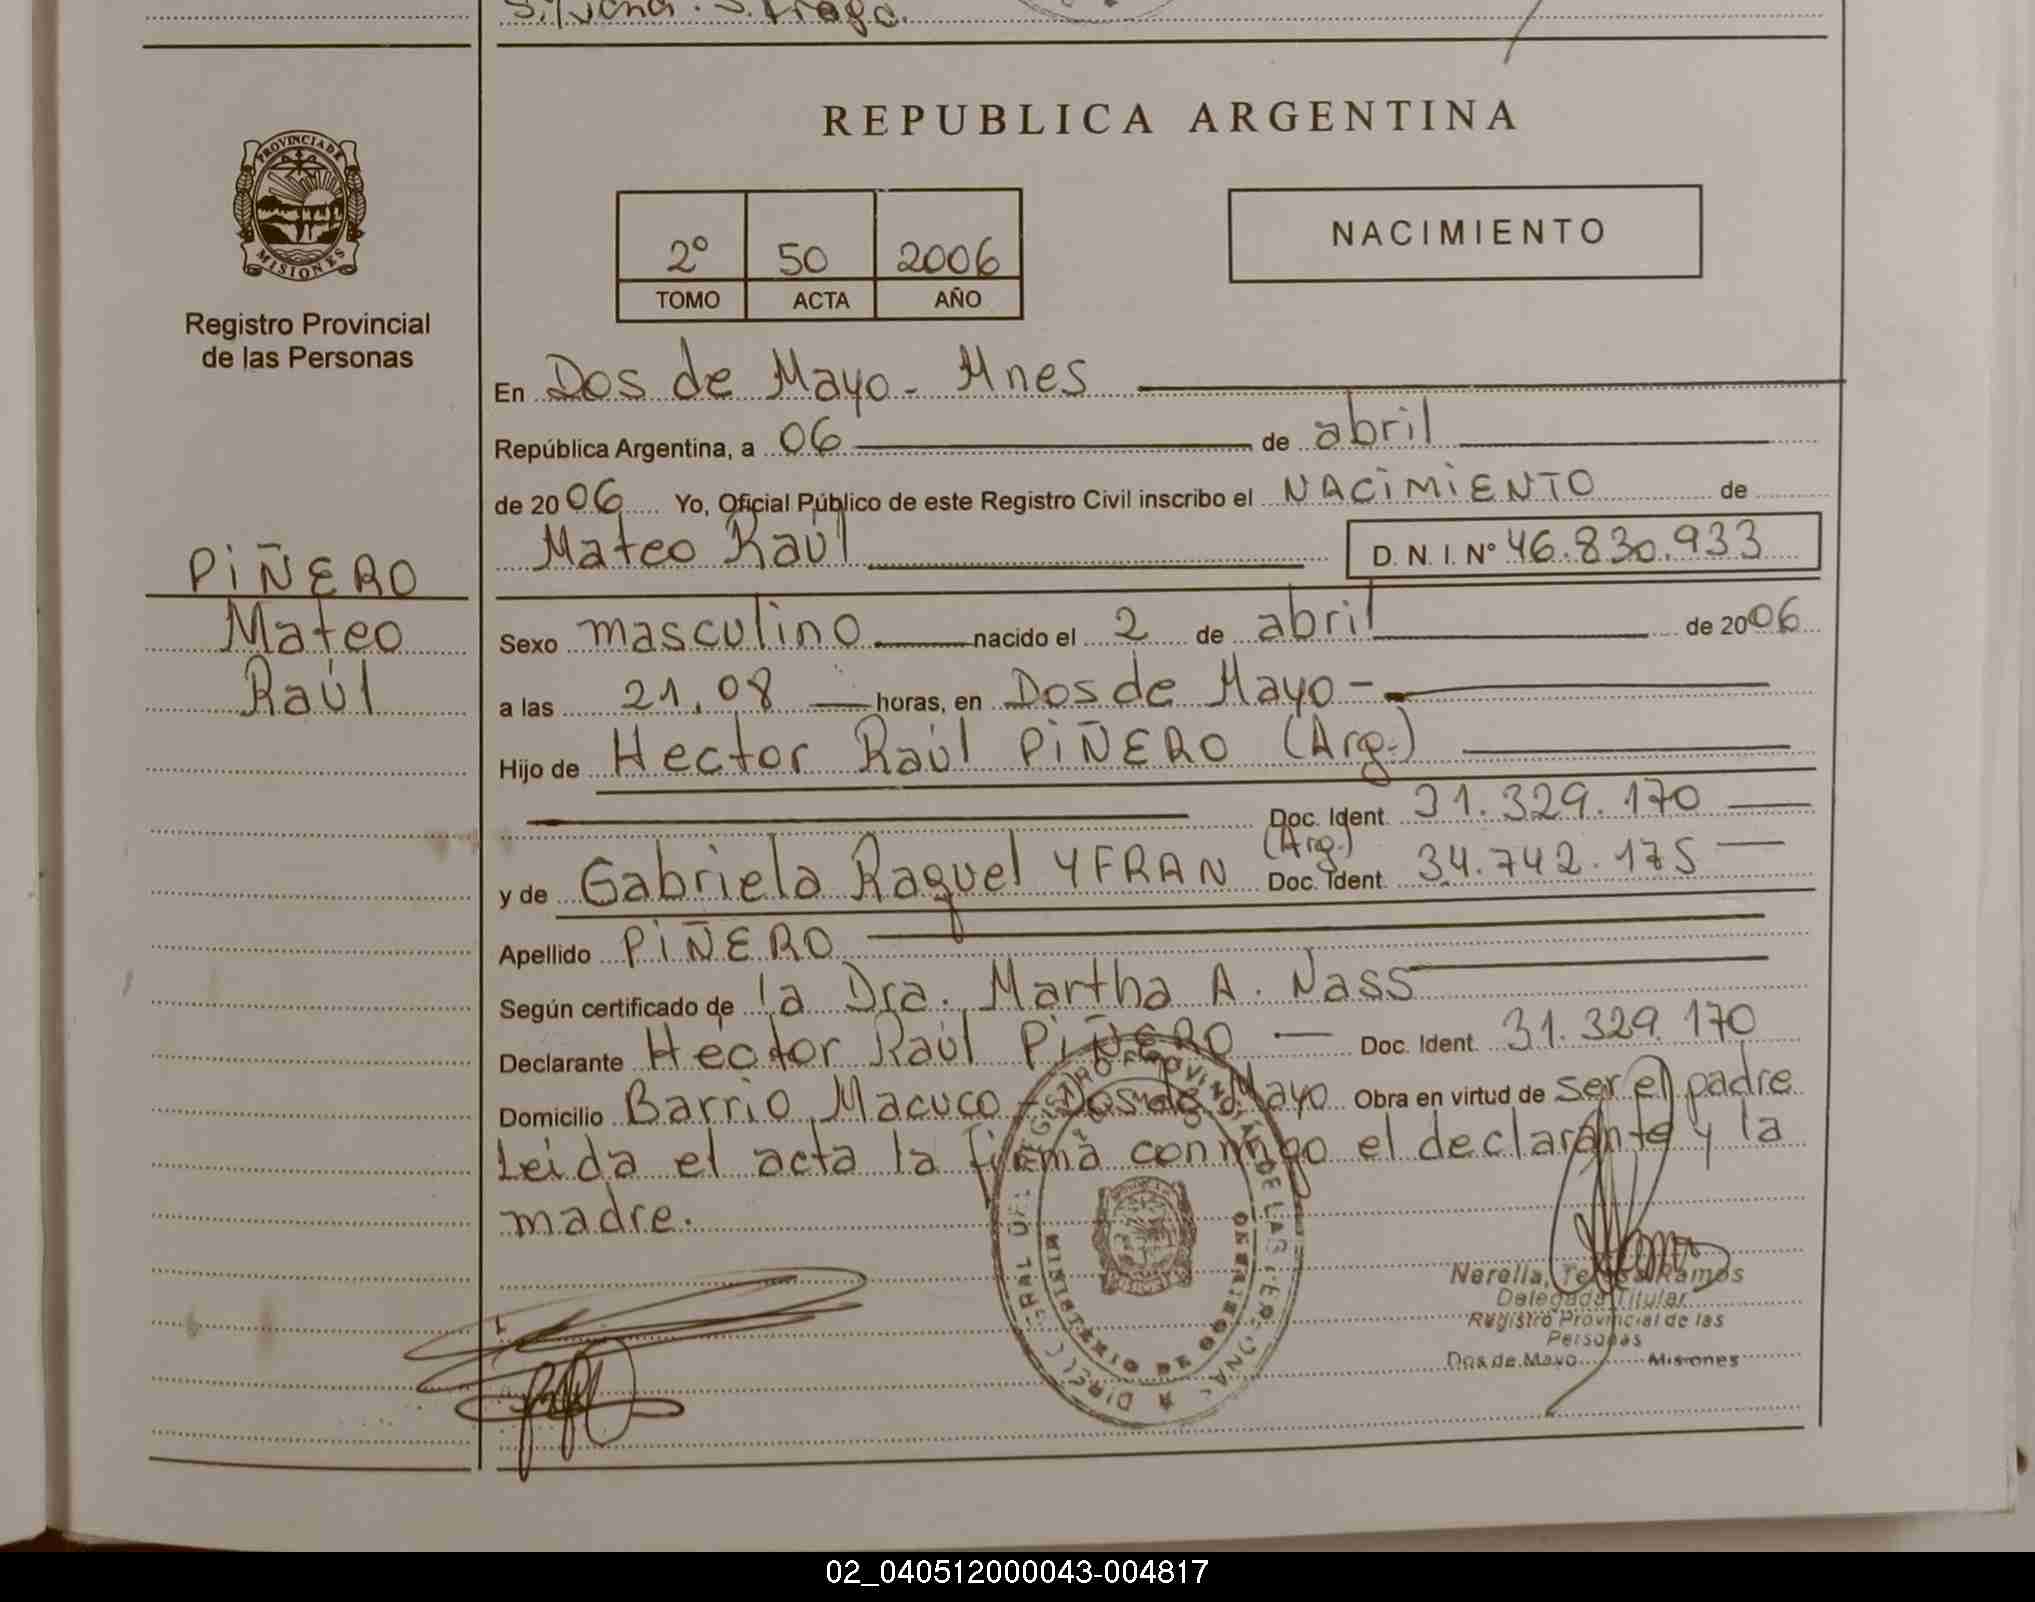 REPUBLICA ARGENTINA
PROVINCIA DE
MISIONES
Registro Provincial
de las Personas
2º 50 2006
TOMO ACTA AÑO
NACIMIENTO
En Dos de Mayo - Mnes
República Argentina, a 06 de abril
de 2006 Yo, Oficial Público de este Registro Civil inscribo el NACIMIENTO de
Mateo Raúl D. N. I. Nº 46.830.933
PIÑERO
Mateo
Raúl
Sexo masculino nacido el 2 de abril de 2006
a las 21,08 horas, en Dos de Mayo -
Hijo de Hector Raúl PIÑERO (Arg.)
Doc. Ident. 31.329.170
y de Gabriela Raquel YFRAN (Arg.) Doc. Ident. 34.742.175
Apellido PIÑERO
Según certificado de la Dra. Martha A. Nass
Declarante Hector Raúl PIÑERO Doc. Ident. 31.329.170
Domicilio Barrio Macuco - Dos de Mayo Obra en virtud de ser el padre
Leida el acta la firma conmigo el declarante y la
madre.
MINISTERIO DE GOBIERNO
Nerella, Teresa Ramos
Delegada Titular
Registro Provincial de las
Personas
Dos de Mayo Misiones
02_040512000043-004817